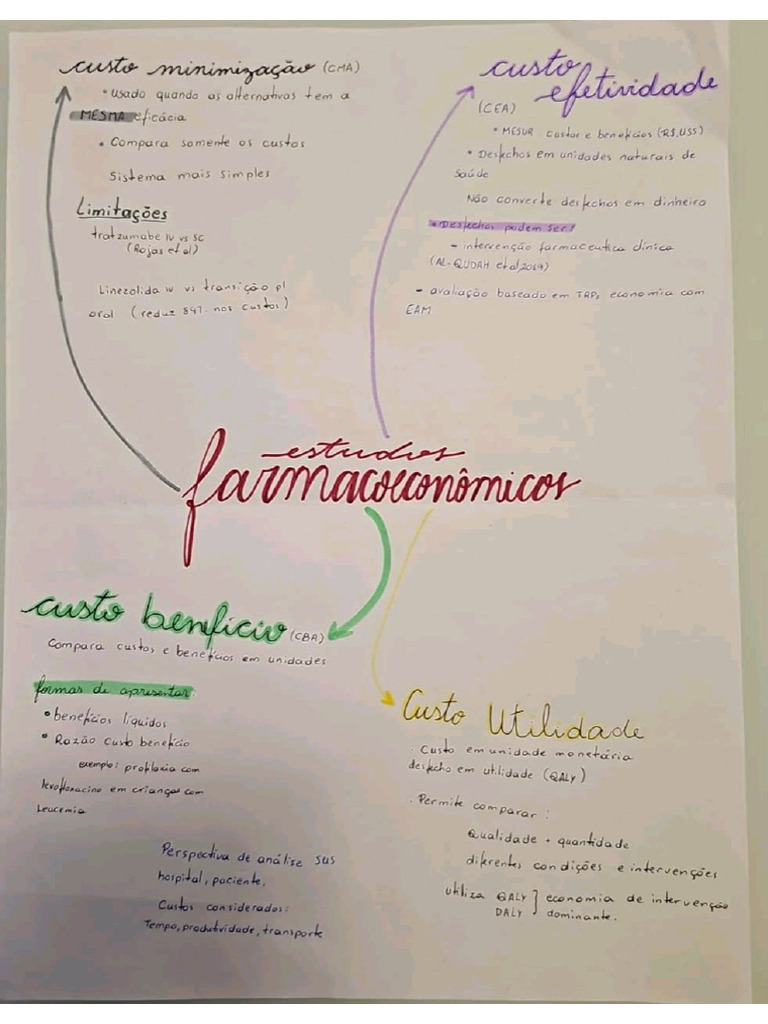 custo minimização (CMA)
• Usado quando as alternativas tem a
MESMA eficácia
• Compara somente os custos
Sistema mais simples
Limitações
tratzumabe IV vs SC
(Rojas et al)
Linezolida IV vs transição p/
oral (reduz 84% nos custos)
custo
efetividade
(CEA)
• MESUR custos e benefícios (R$, US$)
• Desfechos em unidades naturais de
saúde
Não converte desfechos em dinheiro
• Desfechos podem ser:
- intervenção farmaceutica clínica
(AL-QUDAH et al 2019)
- avaliação baseado em TRPs economia com
EAM
estudos
farmacoeconômicos
custo benefício (CBA)
Compara custos e benefícios em unidades
formas de apresentar:
• benefícios líquidos
• Razão custo benefício
exemplo: profilaxia com
levofloxacino em crianças com
Leucemia
Perspectiva de análise SUS
hospital, paciente.
Custos considerados:
Tempo, produtividade, transporte
Custo Utilidade
. Custo em unidade monetária
desfecho em utilidade (QALY)
. Permite comparar:
Qualidade + quantidade
diferentes condições e intervenções
utiliza QALY } economia de intervenção
DALY dominante.